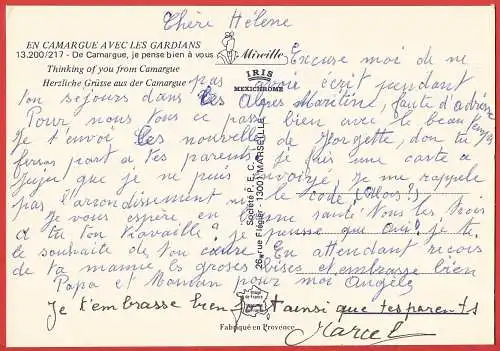 Chère Hélène
EN CAMARGUE AVEC LES GARDIANS
13.200/217 - De Camargue, je pense bien à vous
Mireille
Thinking of you from Camargue
Herzliche Grüsse aus der Camargue
IRIS
MEXICHROME
Excuse moi de ne
pas avoir écrit pendant
ton sejours dans les Alpes Maritine, faute d'adresse
Pour nous tous ce passe bien avec le beau temps
Je t'envoi les nouvelle de Georgette, don tu
feras part a tes parents. J'ai une carte a
Juju que je ne puis envoyé, Je me rappele
pas l'arrondissement ni le code (Alors?)
Je vous espère en bonne santé Vous les trois
a tu ton travaille? je pense que oui! je te
le souhaite de ton cœur. En attendant recois
de ta mamie les groses bises et embrasse bien
Papa et Maman pour moi Angèle
Je t'embrasse bien fort ainsi que tes parents
Marcel
Société P.E.C.
26, rue Flégier - 13001 MARSEILLE
image de France
Fabriqué en Provence